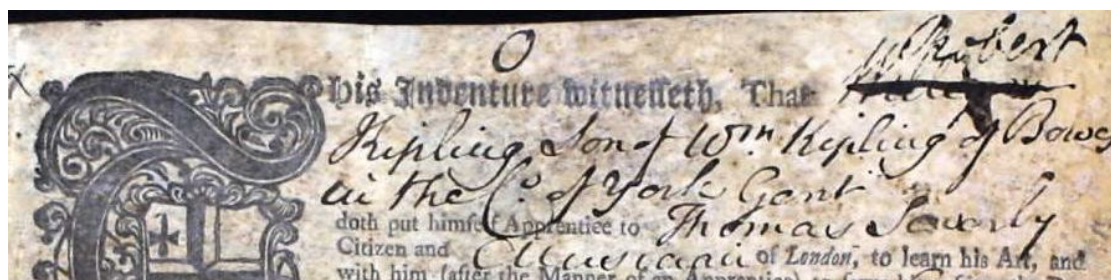 O
Robert
This Indenture witnesseth, That
Kipling Son of Wm. Kipling of Bowes
in the Co. of York Gent
doth put himself Apprentice to Thomas
Citizen and Musician of London, to learn his Art, and
with him (after the Manner of an Apprentice) to